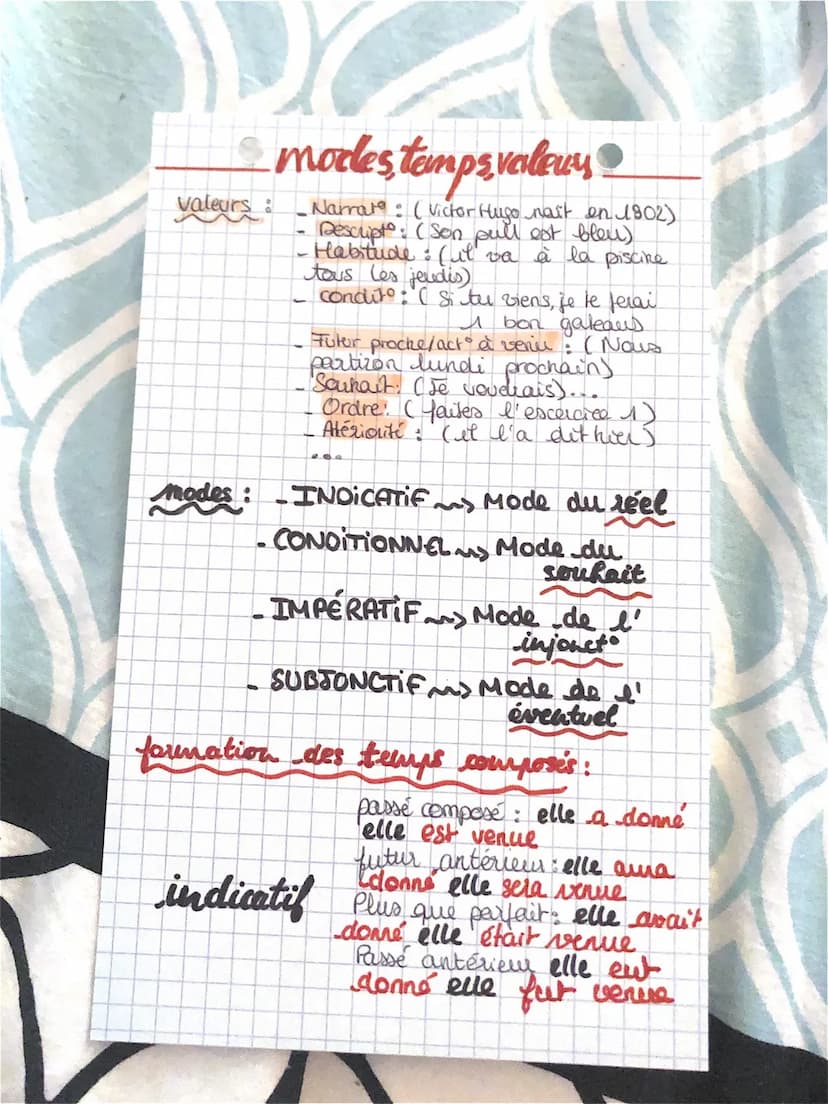 modes, temps, valeurs
valeurs : - Narrat° : (Victor Hugo naît en 1802)
- Descript° : (Son pull est bleu)
- Habitude : (il va à la piscine
tous les jeudis)
- condit° : ( Si tu viens, je te ferai
1 bon gateaus
- Futur proche/act° à venir : ( Nous
partiron lundi prochain)
- Souhait : (Je voudrais)...
- Ordre : ( faites l'escercice 1)
- Atériorité : (il l'a dit hier)
...
modes : - INDICATIF ~~> Mode du réel
- CONDITIONNEL ~~> Mode du
souhait
- IMPÉRATIF ~~> Mode de l'
injonct°
- SUBJONCTIF ~~> Mode de l'
éventuel
formation des temps composés :
passé composé : elle a donné
elle est venue
futur antérieur : elle aura
donné elle sera venue
indicatif
Plus que parfait : elle avait
donné elle était venue
Passé antérieur elle eut
donné elle fut venue